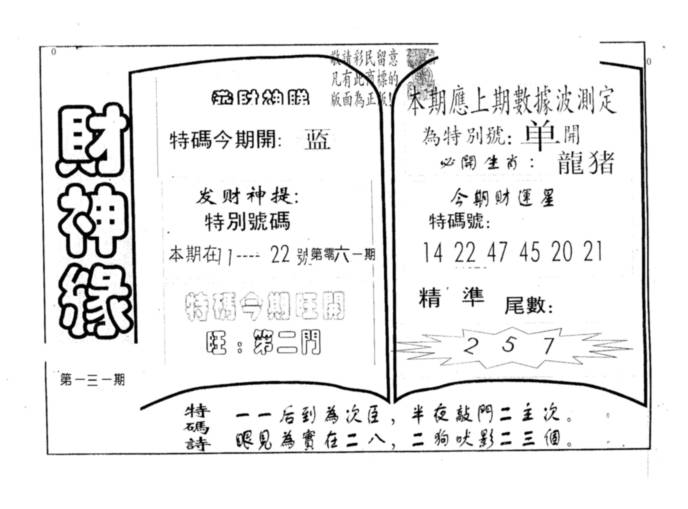 財神緣
第一三一期
敬請彩民留意
凡有此商標的
版面為正版!
特碼今期開: 蓝
发财神提:
特別號碼
本期在11----22號第零六一期
特碼今期旺開
旺:第二門
本期應上期數據波測定
為特別號:单開
必開生肖:龍猪
今期财運星
特碼號:
14 22 47 45 20 21
精準 尾數:
2 5 7
特碼詩
一一后到為次臣,半夜敲門二主次。
眼見為實在二八,二狗吠影二三個。